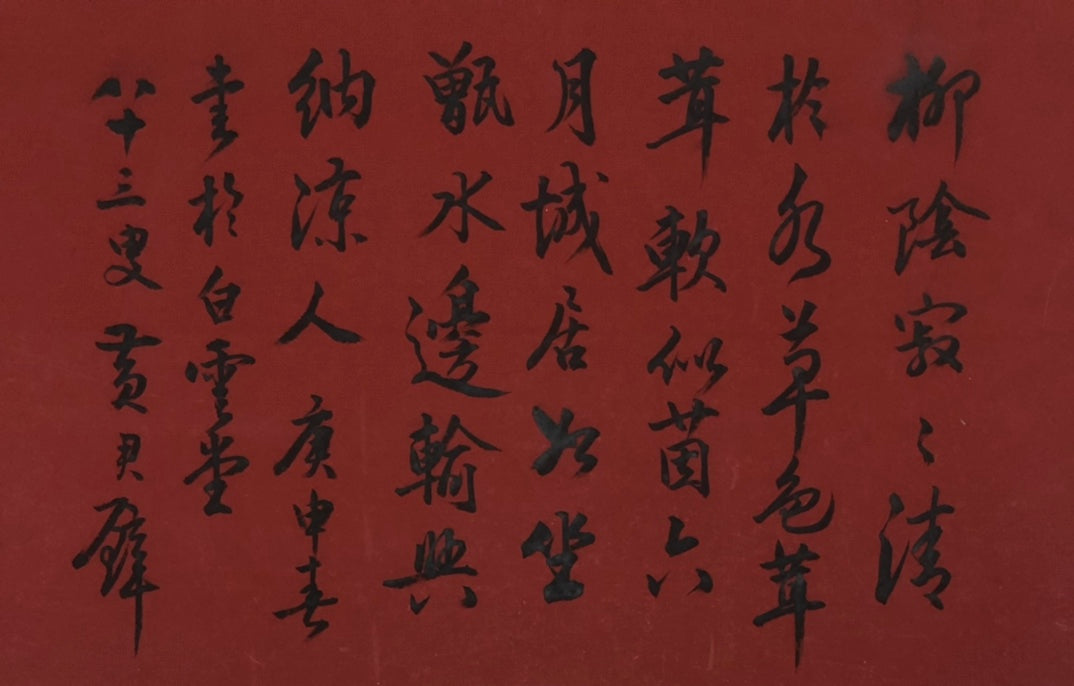 柳陰寂〻清
於水草色茸
茸軟似茵六
月城居如坐
甑水邊輸與
納涼人庚申春
書於白雲堂
八十三叟黃君璧